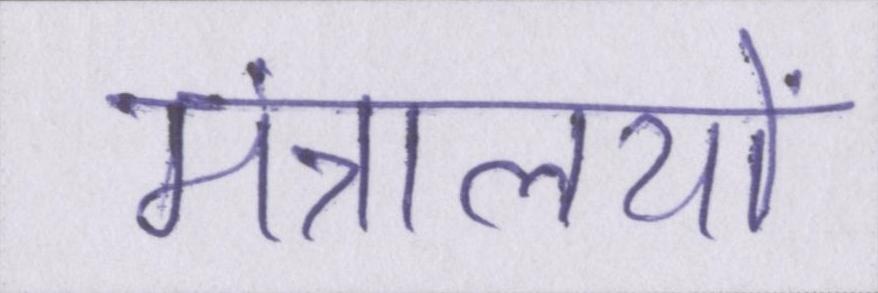 मंत्रालयों